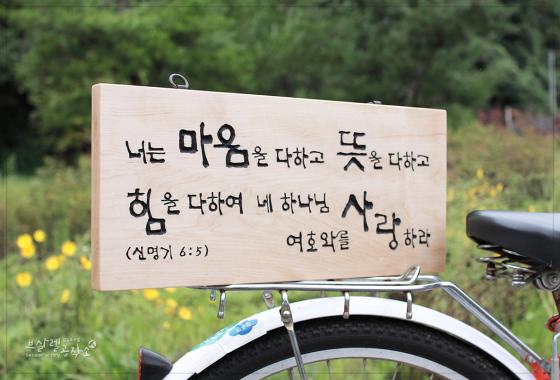 너는 마음을 다하고 뜻을 다하고
힘을 다하여 네 하나님 사랑하라
여호와를
(신명기 6:5)
브살렐공작소